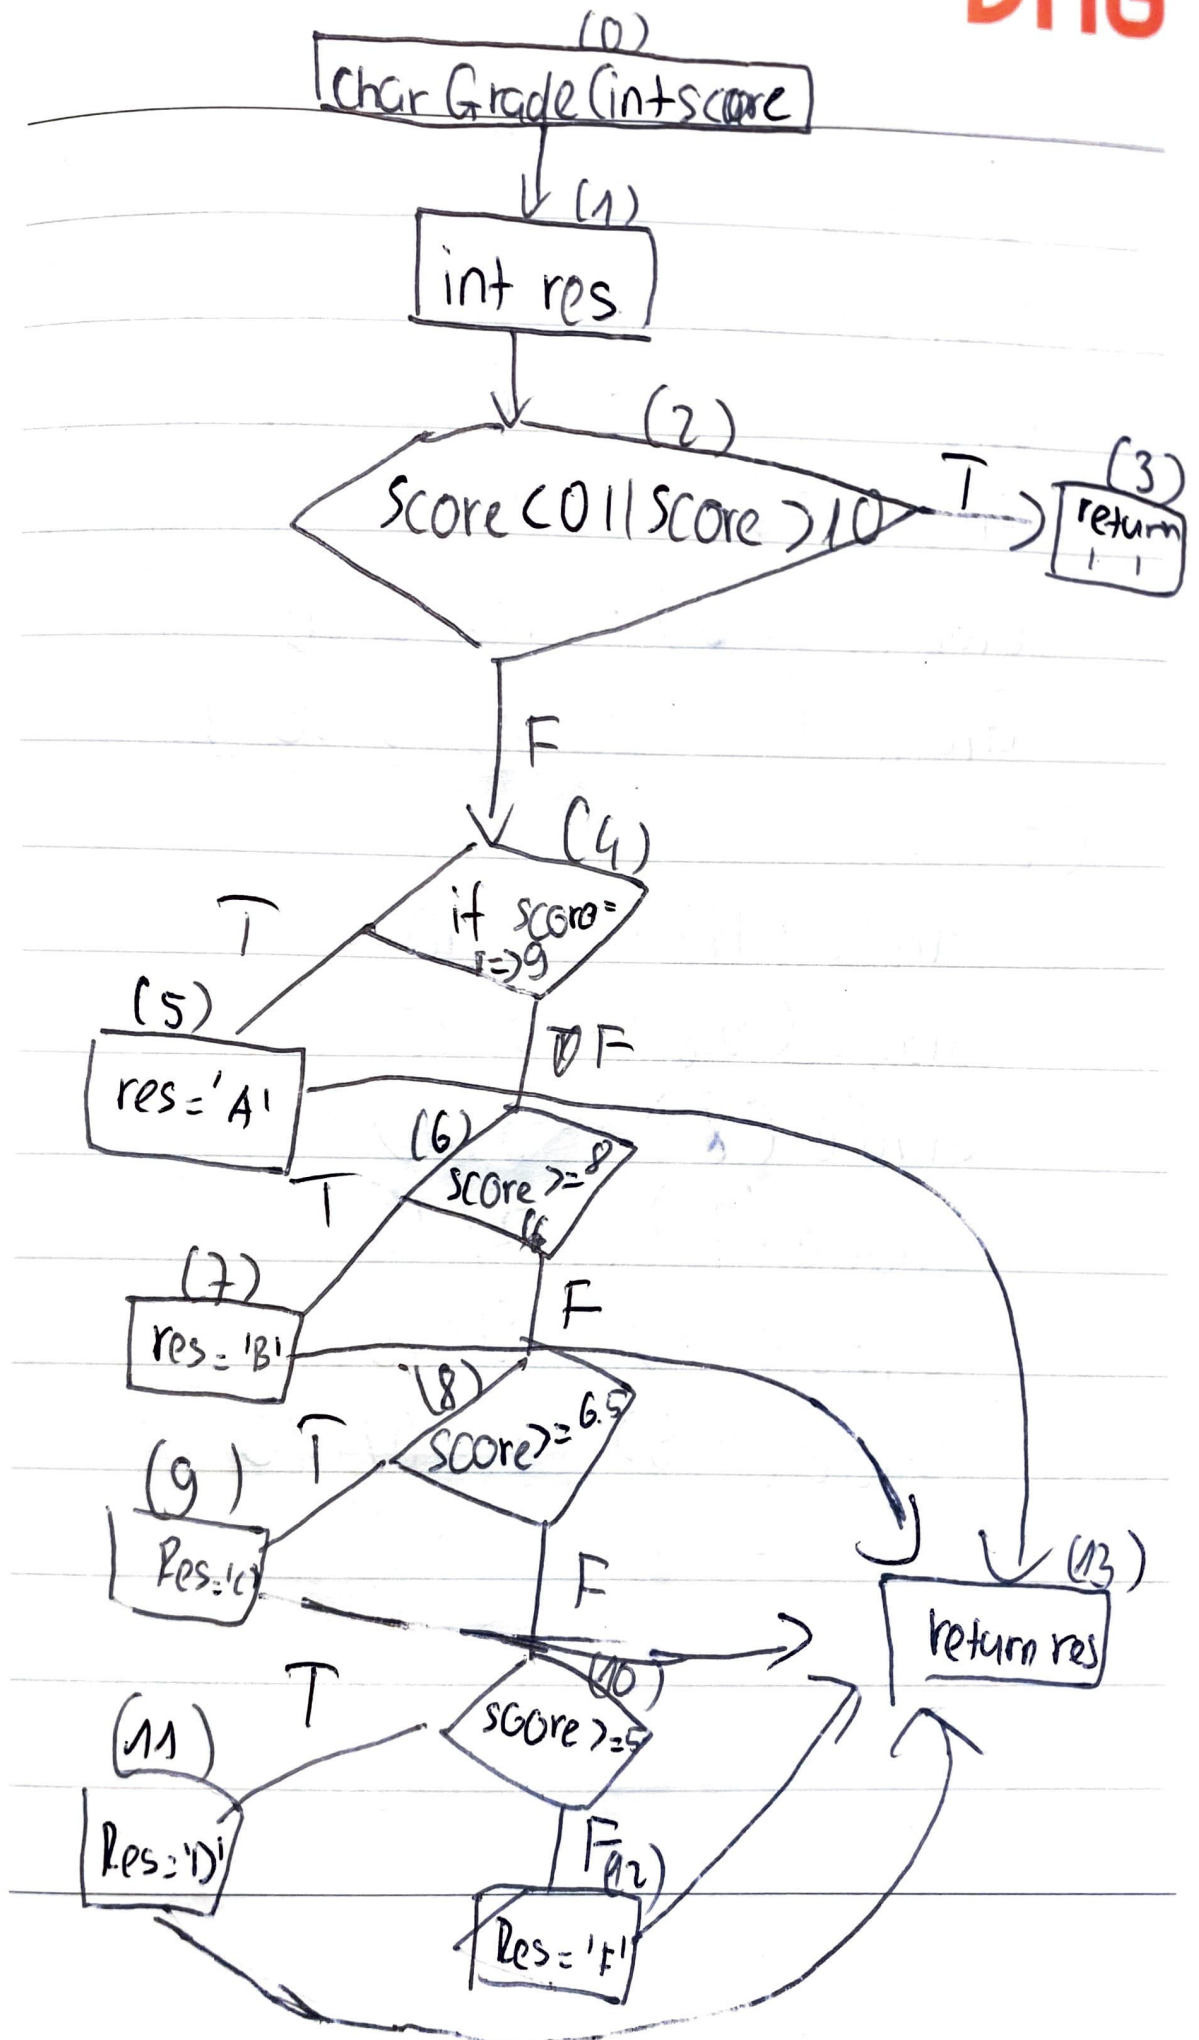 (0)
char Grade(int score
(1)
int res
(2)
score<0||score>10
T
(3)
return
' '
F
(4)
if score=
=>9
T
F
(5)
res='A'
(6)
score>=8
T
(7)
res='B'
F
(8)
score>=6.5
T
(9)
Res='C'
F
(13)
return res
(10)
score>=5
T
(11)
Res='D'
F
(12)
Res='F'